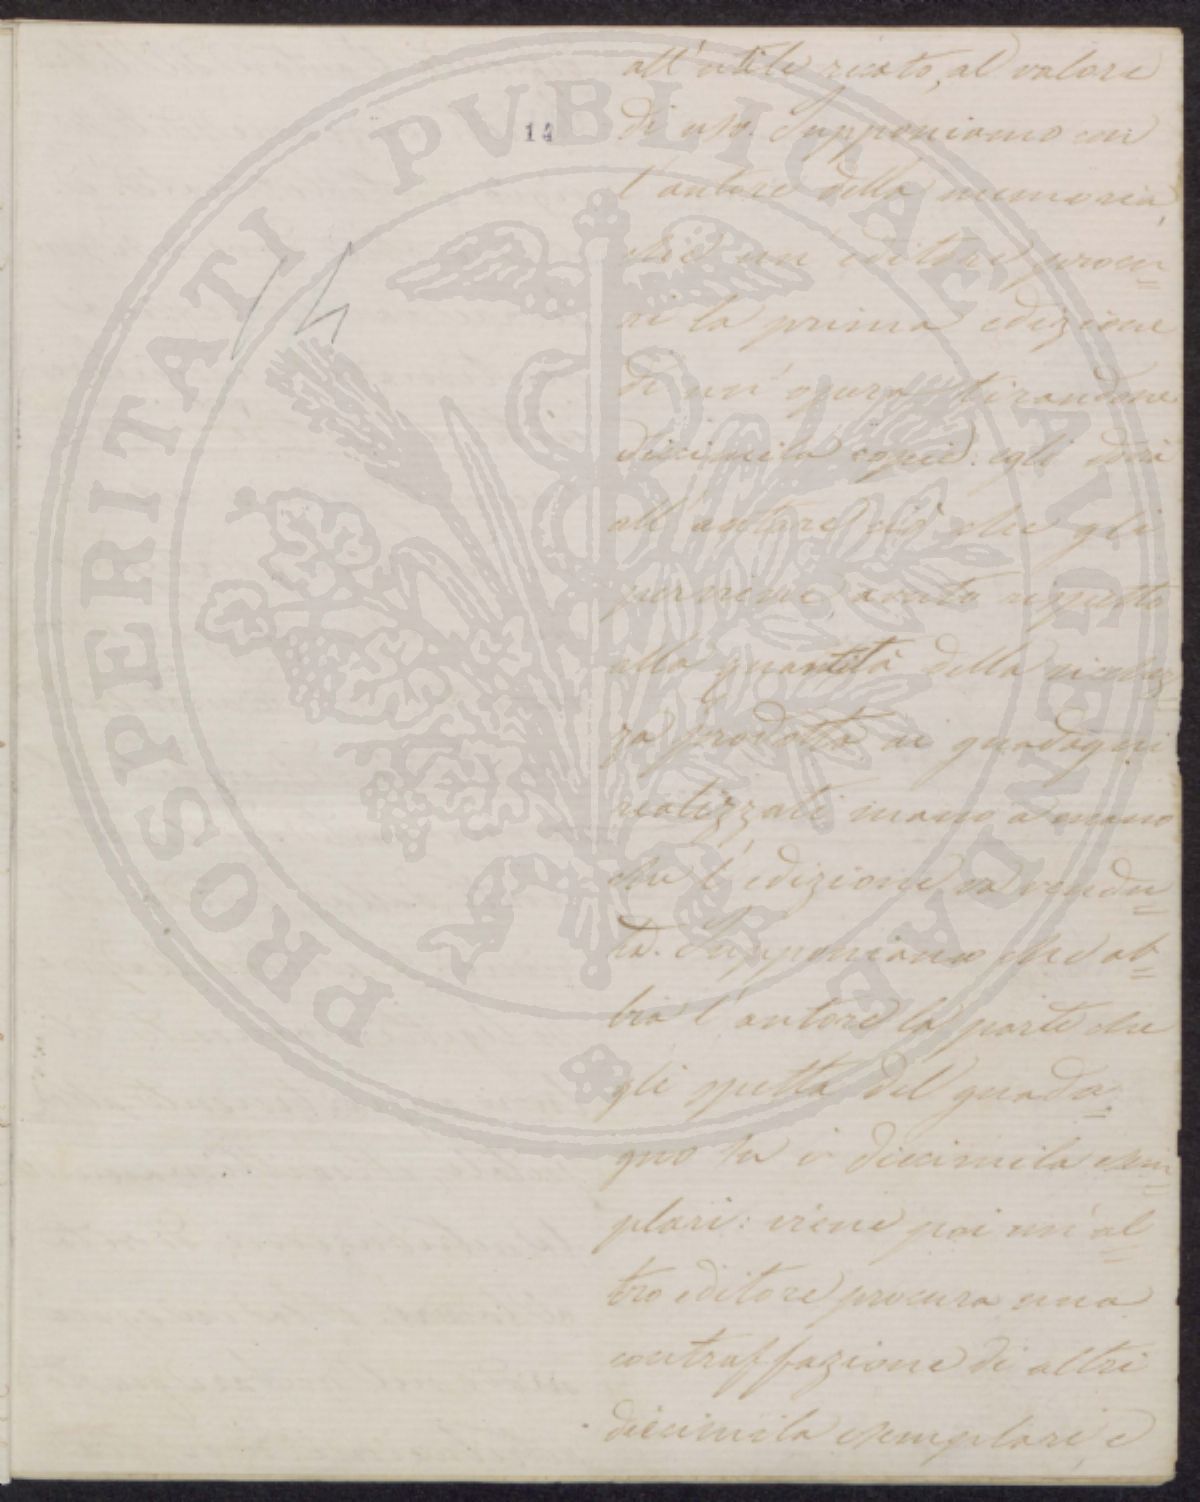 all'utile recato, al valore
14
di uso. Supponiamo con
l'autore della memoria,
che un editore procu=
ri la prima edizione
di un'opera tirandone
diecimila copie: egli darà
all'autore ciò che gli
perviene, avuto rispetto
alla quantità della ricchez=
za prodotta ai guadagni
realizzati mano a mano
che l'edizione va vendu=
ta. Supponiamo che ab=
bia l'autore la parte che
gli spetta del guada=
gno su i diecimila esem=
plari: viene poi un'al=
tro editore procura una
contraffazione di altri
diecimila esemplari e
14
PROSPERITATI PVBLICAE AVGENDAE